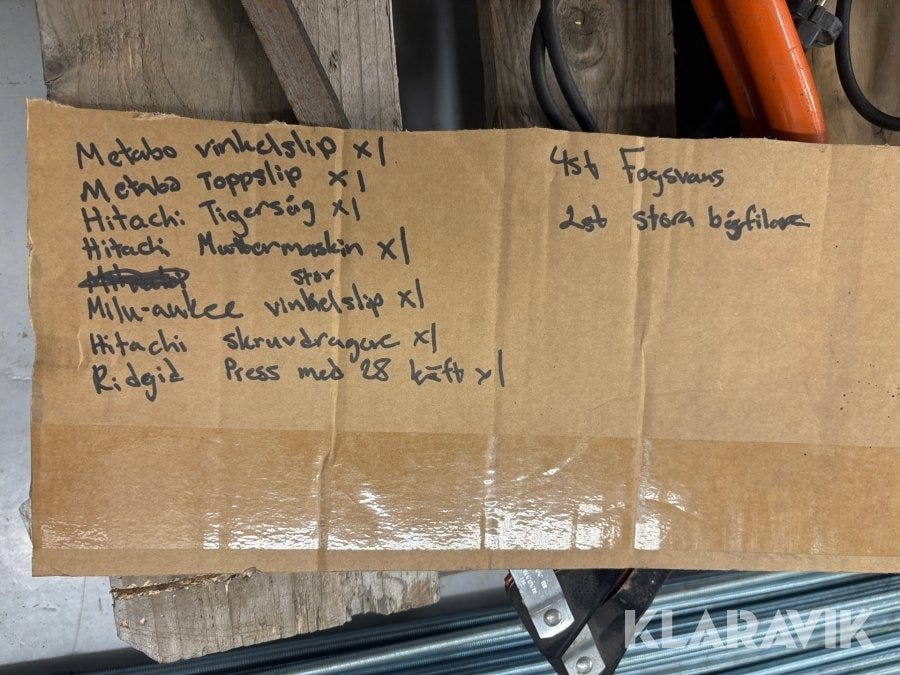 Metabo vinkelslip x1
Metabo Toppslip x1
Hitachi Tigersåg x1
Hitachi Muttermaskin x1
stor
Milu-aukee vinkelslip x1
Hitachi skruvdragare x1
Ridgid Press med 28 käft x1
4st Fogsvans
2st stora bågfilare
KLARAVIK